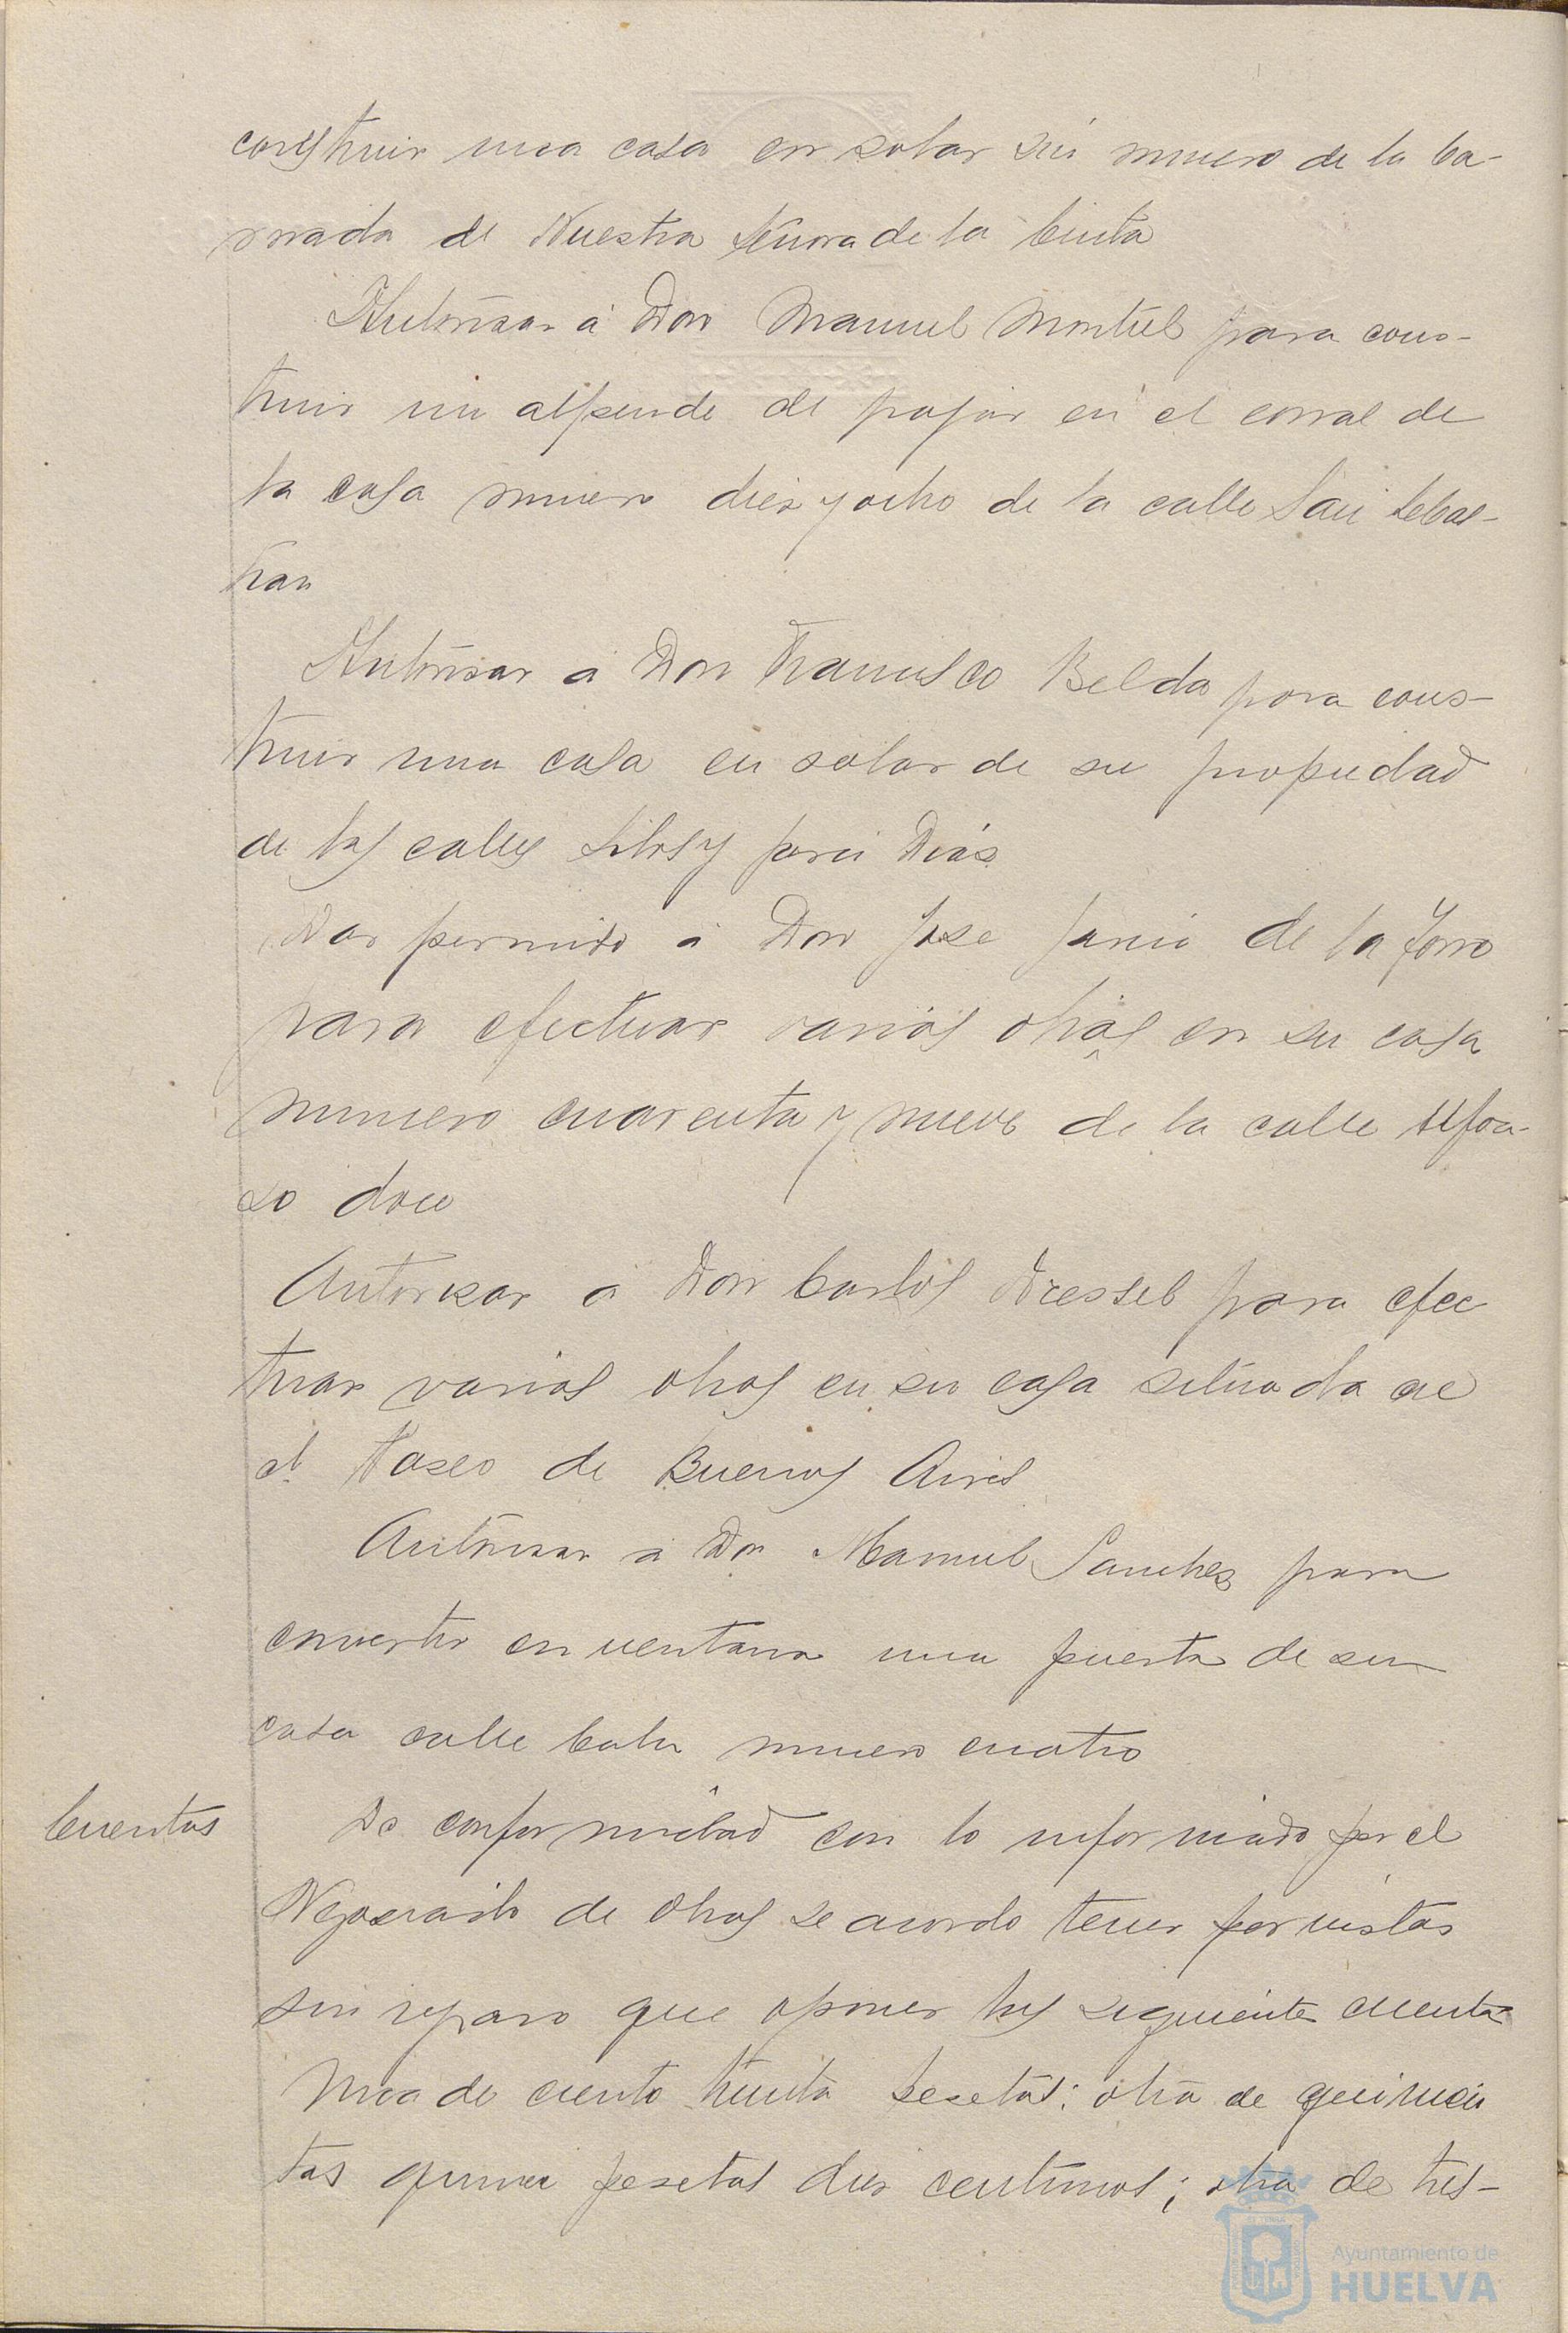 construir una casa en solar sin numero de la ba-
rriada de Nuestra Señora de la Cinta
Autorisar á Don Manuel Montiel para cons-
truir un alpende de pajar en el corral de
la casa numero dies y ocho de la calle San Sebas-
tian
Autorisar a Don Francisco Belda para cons-
truir una casa en solar de su propiedad
de las calles Silos y Dias
Dar permiso a Don Jose Garcia de la Torre
para efectuar varias obras en su casa
numero cuarenta y nueve de la calle Alfon-
so doce
Autorisar a Don Carlos Dressel para efec
tuar varias obras en su casa situada
el Paseo de Buenos Aires
Autorisar a Don Manuel Sanches para
convertir en ventana una puerta de su
casa calle numero cuatro
Cuentas
De conformidad con lo informado por el
Negociado de Obras se acordo tener por vistas
sin reparo que oponer las siguientes cuentas
Una de ciento treinta pesetas; otra de quinien
tas quince pesetas dies centimos; otra de tres-
Ayuntamiento de
HUELVA